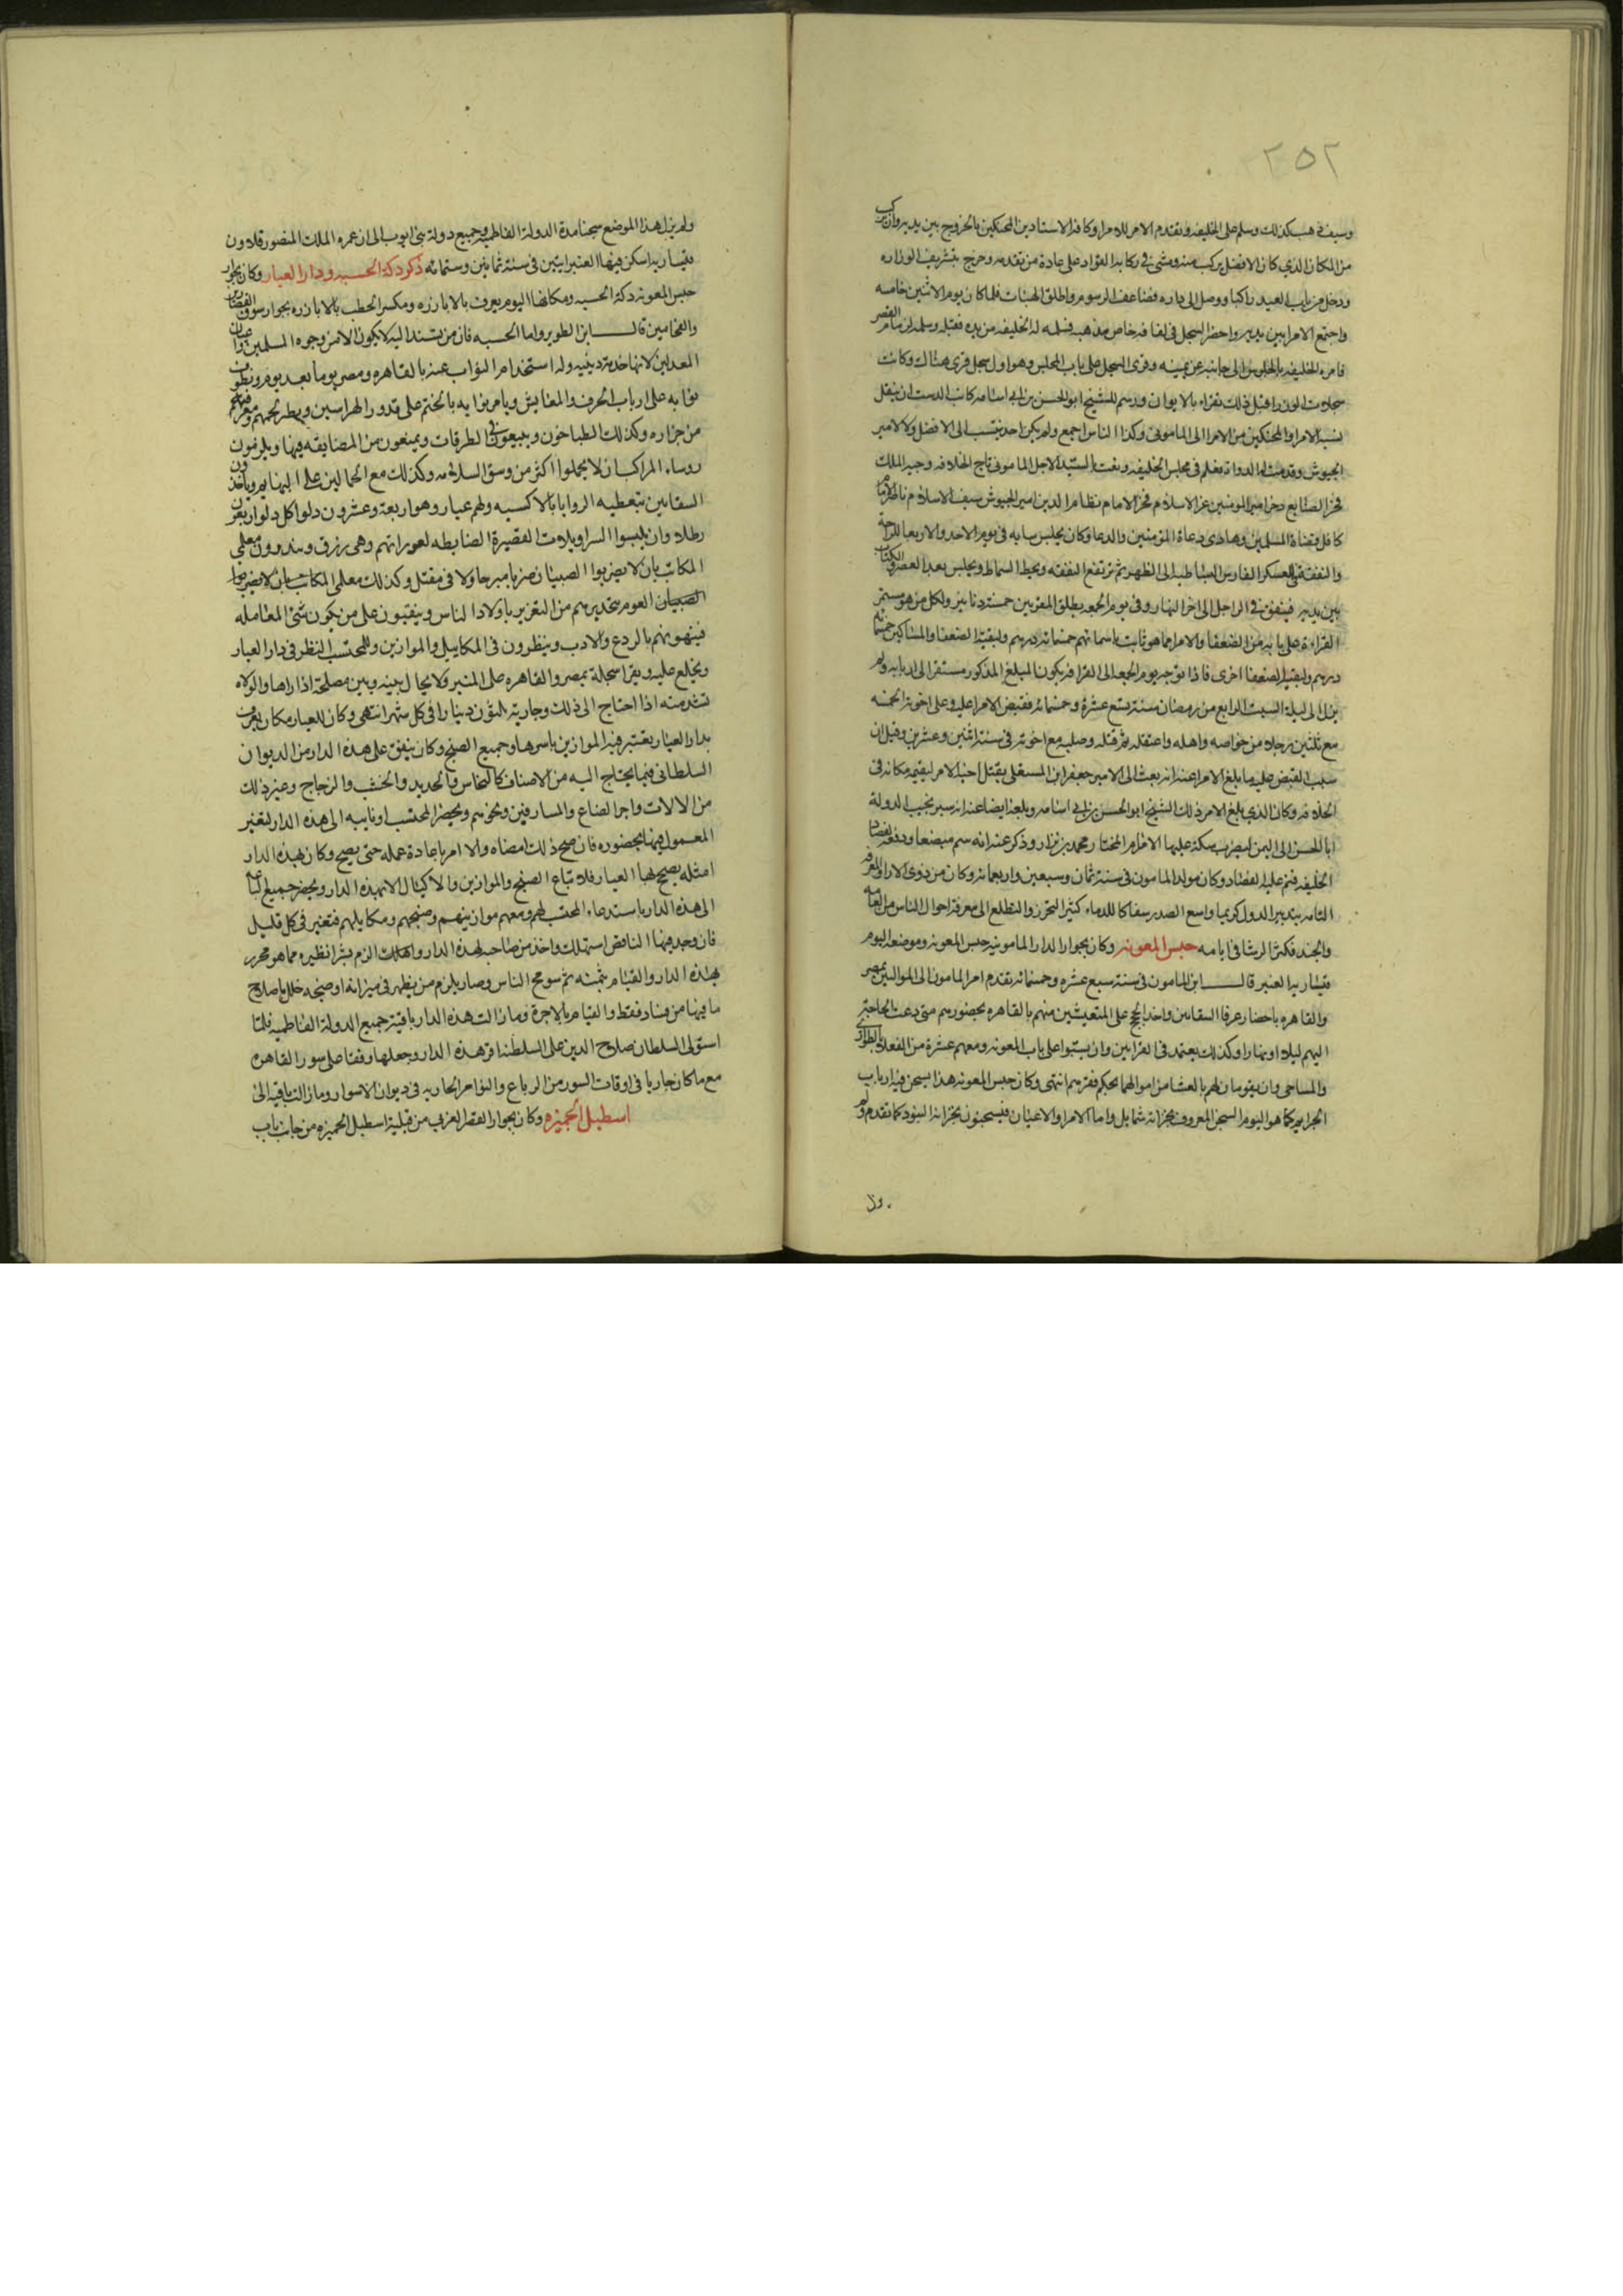 ٢٥٢
وسيف ذهب كذلك وسلم على الخليفه وتقدم الامر للامرا وكافة الاستادين المحنكين بالخروج بين يديه وان يركب
من المكان الذي كان الافضل يركب منه ومشى في ركابه القواد على عادة من تقدمه وخرج بتشريف الوزاره
ودخل من باب العيد راكبا ووصل الى داره فضاعف الرسوم واطلق الهبات فلما كان يوم الاثنين خامسه
واجتمع الامرا بين يديه واحضر السجل في لفافه خاص مذهبه فسلمه له الخليفه من يده فقبله وسلمه لزمام القصر
فامره الخليفه بالجلوس الى جانبه عن يمينه وقرى السجل على باب المجلس وهو اول سجل قرى هناك وكانت
سجلات الوزرا قبل ذلك تقرا بالايوان ورسم للشيخ ابو الحسن بن ابي اسامه كاتب الدست ان ينقل
نسبة الامرا والمحنكين من الامرا الى الماموني وكذا الناس اجمع ولم يكن احد ينتسب الى الافضل ولا لامير
الجيوش وقدمت له الدواة فعلم في مجلس الخليفه ونعت بالسيد الاجل المامون تاج الخلافه وجيه الملك
فخر الصنايع ذخر امير المومنين عز الاسلام فخر الانام نظام الدين امير الجيوش سيف الاسلام ناصر الامام
كافل قضاة المسلمين وهادى دعاة المؤمنين والدعا وكان يجلس بداره في يوم الاحد والاربعا للراحة
والنفقة في العسكر الفارس البساطيه الى الظهر ثم ترتفع النفقه ويحط السماط ويجلس بعد العصر والكتاب
بين يديه فينفق في الراجل الى اخر النهار وفي يوم الجمعه يطلق المقربين خمسة دنانير ولكل من هو مستمر
القراءة على بابه من الضعفا والاجرا مما هو ثابت باسمائهم خمسمائه درهم ولبقية الضعفا والمساكين خمسمائه
درهم ولبقية الضعفا اخرى فاذا توجه يوم الجمعه الى القرافه يكون المبلغ المذكور مستقرا لاربابه ولم
يزل الى ليلة السبت الرابع من رمضان سنة تسع عشرة وخمسمائه فقبض الامر عليه وعلى اخوته الخمسه
مع ثلثين رجلا من خواصه واهله واعتقله ثم قتله وصلبه مع اخوته في سنة اثنين وعشرين وقيل ان
سبب القبض عليه ما بلغ الامر عنه انه بعث الى الامير جعفر ابن المستعلى بقتل اخيه الامر ليقيمه مكانه في
الخلافه وكان الذي بلغ الامر ذلك الشيخ ابو الحسن بن ابي اسامه وبلغه ايضا عنه انه سير نجيب الدولة
ابا الحسن الى اليمن ليضرب سكة عليها الامام المختار محمد بن نزار وذكر عنه انه سم مبضعا ودفعه لفصاد
الخليفه فنم عليه الفصاد وكان مولد المامون في سنة ثمان وسبعين واربعمائه وكان من ذوي الارا والمعرفه
التامه بتدبير الدول كريما واسع الصدر سفاكا للدماء كثير التحرز والتطلع الى معرفة احوال الناس من العامه
والجند فكثر الوشا في ايامه حبس المعونه وكان بجوار الدار المامونيه حبس المعونه وموضعه اليوم
قيسارية العنبر قال ابن المامون في سنة سبع عشره وخمسمائه تقدم امر المامون الى الواليين بمصر
والقاهره باحضار عرفا السقايين واخذ الحجج على المتعيشين منهم بالقاهره بحضورهم متى دعت الحاجة
اليهم ليلا او نهارا وكذلك يعتمد في القرابين وان يبيتوا على باب المعونه ومعهم عشرة من الفعله بالطوارى
والمساحى وان يقوما لهم بالعشا من اموالهما بحكم فقرهم انتهى وكان حبس المعونه هذا يسجن فيه ارباب
الجرايم كما هو اليوم السجن المعروف بخزانة شمايل واما الامرا والاعيان فيسجنون بخزانة البنود كما تقدم ولم
ولم يزل هذا الموضع سجنا مدة الدولة الفاطميه وجميع دولة بنى ايوب الى ان عمره الملك المنصور قلاون
قيساريه اسكن فيها العنبرانيين في سنة ثمانين وستمائه ذكر دكة الحسبه ودار العيار وكان بجوار
حبس المعونه دكة الحسبه ومكانها اليوم يعرف بالابازره ومكسر الحطب بالابازره بجوار سوق القصارين
والفحامين قال ابن الطوير واما الحسبه فان من تستند اليه لا يكون الا من وجوه المسلمين واعيان
المعدلين لانها خدمة دينيه وله استخدام النواب عنه بالقاهره ومصر يوما بعد يوم ويطوف
نوابه على ارباب الحرف والمعايش ويامر نوابه بالختم على قدور الهراسين ونظر لحمهم ومعرفة
من جزاره وكذلك الطباخون ويتبعون الطرقات ويمنعون من المضايقه فيها ويلزمون
روساء المراكب ان لا يحملوا اكثر من وسق السلامه وكذلك مع الحمالين على البهايم وياخذون
السقايين بتغطيه الروايا بالاكسيه ولهم عيار وهو اربعة وعشرون دلوا كل دلو اربعون
رطلا وان يلبسوا السراويلات القصيرة الضابطه لعوراتهم وهى زرق وينذرون معلمي
المكاتب بان لا يضربوا الصبيان ضربا مبرحا ولا في مقتل وكذلك معلمى
العوم بتحذيرهم من التغرير باولاد الناس ويقفون على من يكون سىء المعامله
فينهونهم بالردع والادب وينظرون في المكاييل والموازين وللمحتسب النظر في دار العيار
ويخلع عليه ويقرا سجله بمصر والقاهره على المنبر ولا يحال بينه وبين مصلحة اذا راها والولاه
تشد معه اذا احتاج الى ذلك وجاريه ثلثون دينارا في كل شهر انتهى وكان للعيار مكان يعرف
بدار العيار يعتبر فيه الموازين باسرها وجميع الصنج وكان ينفق على هذه الدار من الديوان
السلطاني فيما يحتاج اليه من الاصناف كالنحاس والحديد والخشب والزجاج وغير ذلك
من الالات واجر الصناع والمشارفين ونحوهم ويحضر المحتسب او نايبه الى هذه الدار ليعتبر
المعمول فيها بحضوره فان صح ذلك امضاه والا امر باعادة عمله حتى يصح وكان بهذه الدار
امثله يصحح بها العيار فلا تباع الصنج والموازين والاكيال الا بهذه الدار ويحضر جميع الباعه
الى هذه الدار باستدعاء المحتسب لهم ومعهم موازينهم وصنجهم ومكاييلهم فتعتبر في كل قليل
فان وجد فيها الناقص استهلك واخذ من صاحبه لهذه الدار والزم بشرا نظيره مما هو محرر
بهذه الدار والقيام بثمنه ثم سومح الناس وصار يلزم من يظهر في ميزانه او صنجه خلل باصلاح
ما فيها من فساد فقط والقيام بالاجرة وما زالت هذه الدار باقية جميع الدولة الفاطميه فلما
استولى السلطان صلاح الدين على السلطنة اقر هذه الدار وجعلها وقفا على سور القاهره
مع ما كان جاريا في اوقات السور من الرباع والنواحي الجاريه في ديوان الاسوار وما زالت باقيه الى
اسطبل الجميزه وكان بجوار القصر الغربي من قبليه اسطبل الجميزه من جانب باب
ولم